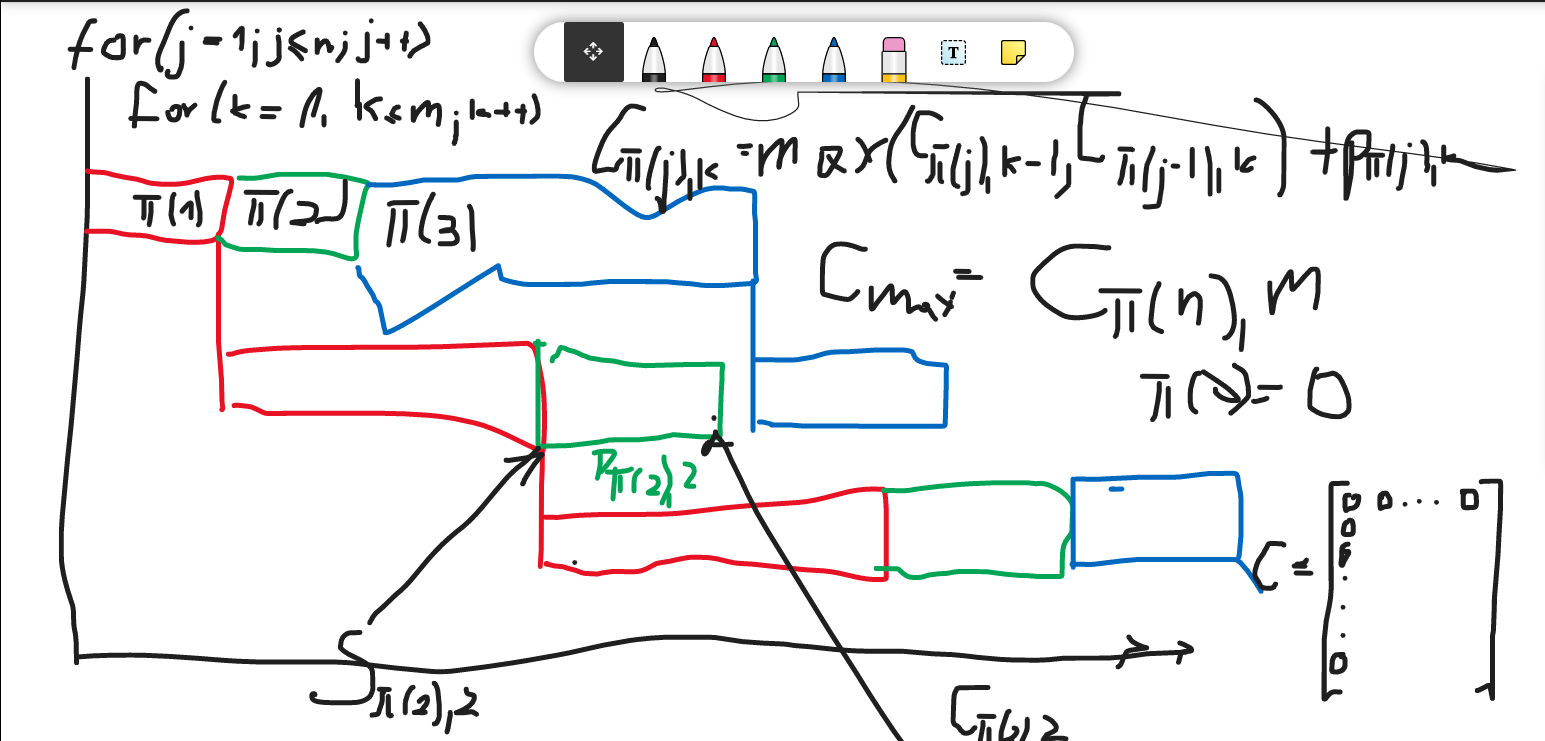 for(j=1;j≤n;j++)
for(k=1, k≤m;k++)
T
C π(j),k = max(C π(j),k-1, C π(j-1),k) + p π(j),k
π(1) π(2) π(3)
C max = C π(n), m
π(0)= 0
P π(2),2
C = [0 0 ... 0
0
0
.
.
.
0]
S π(2),2
C π(2),2